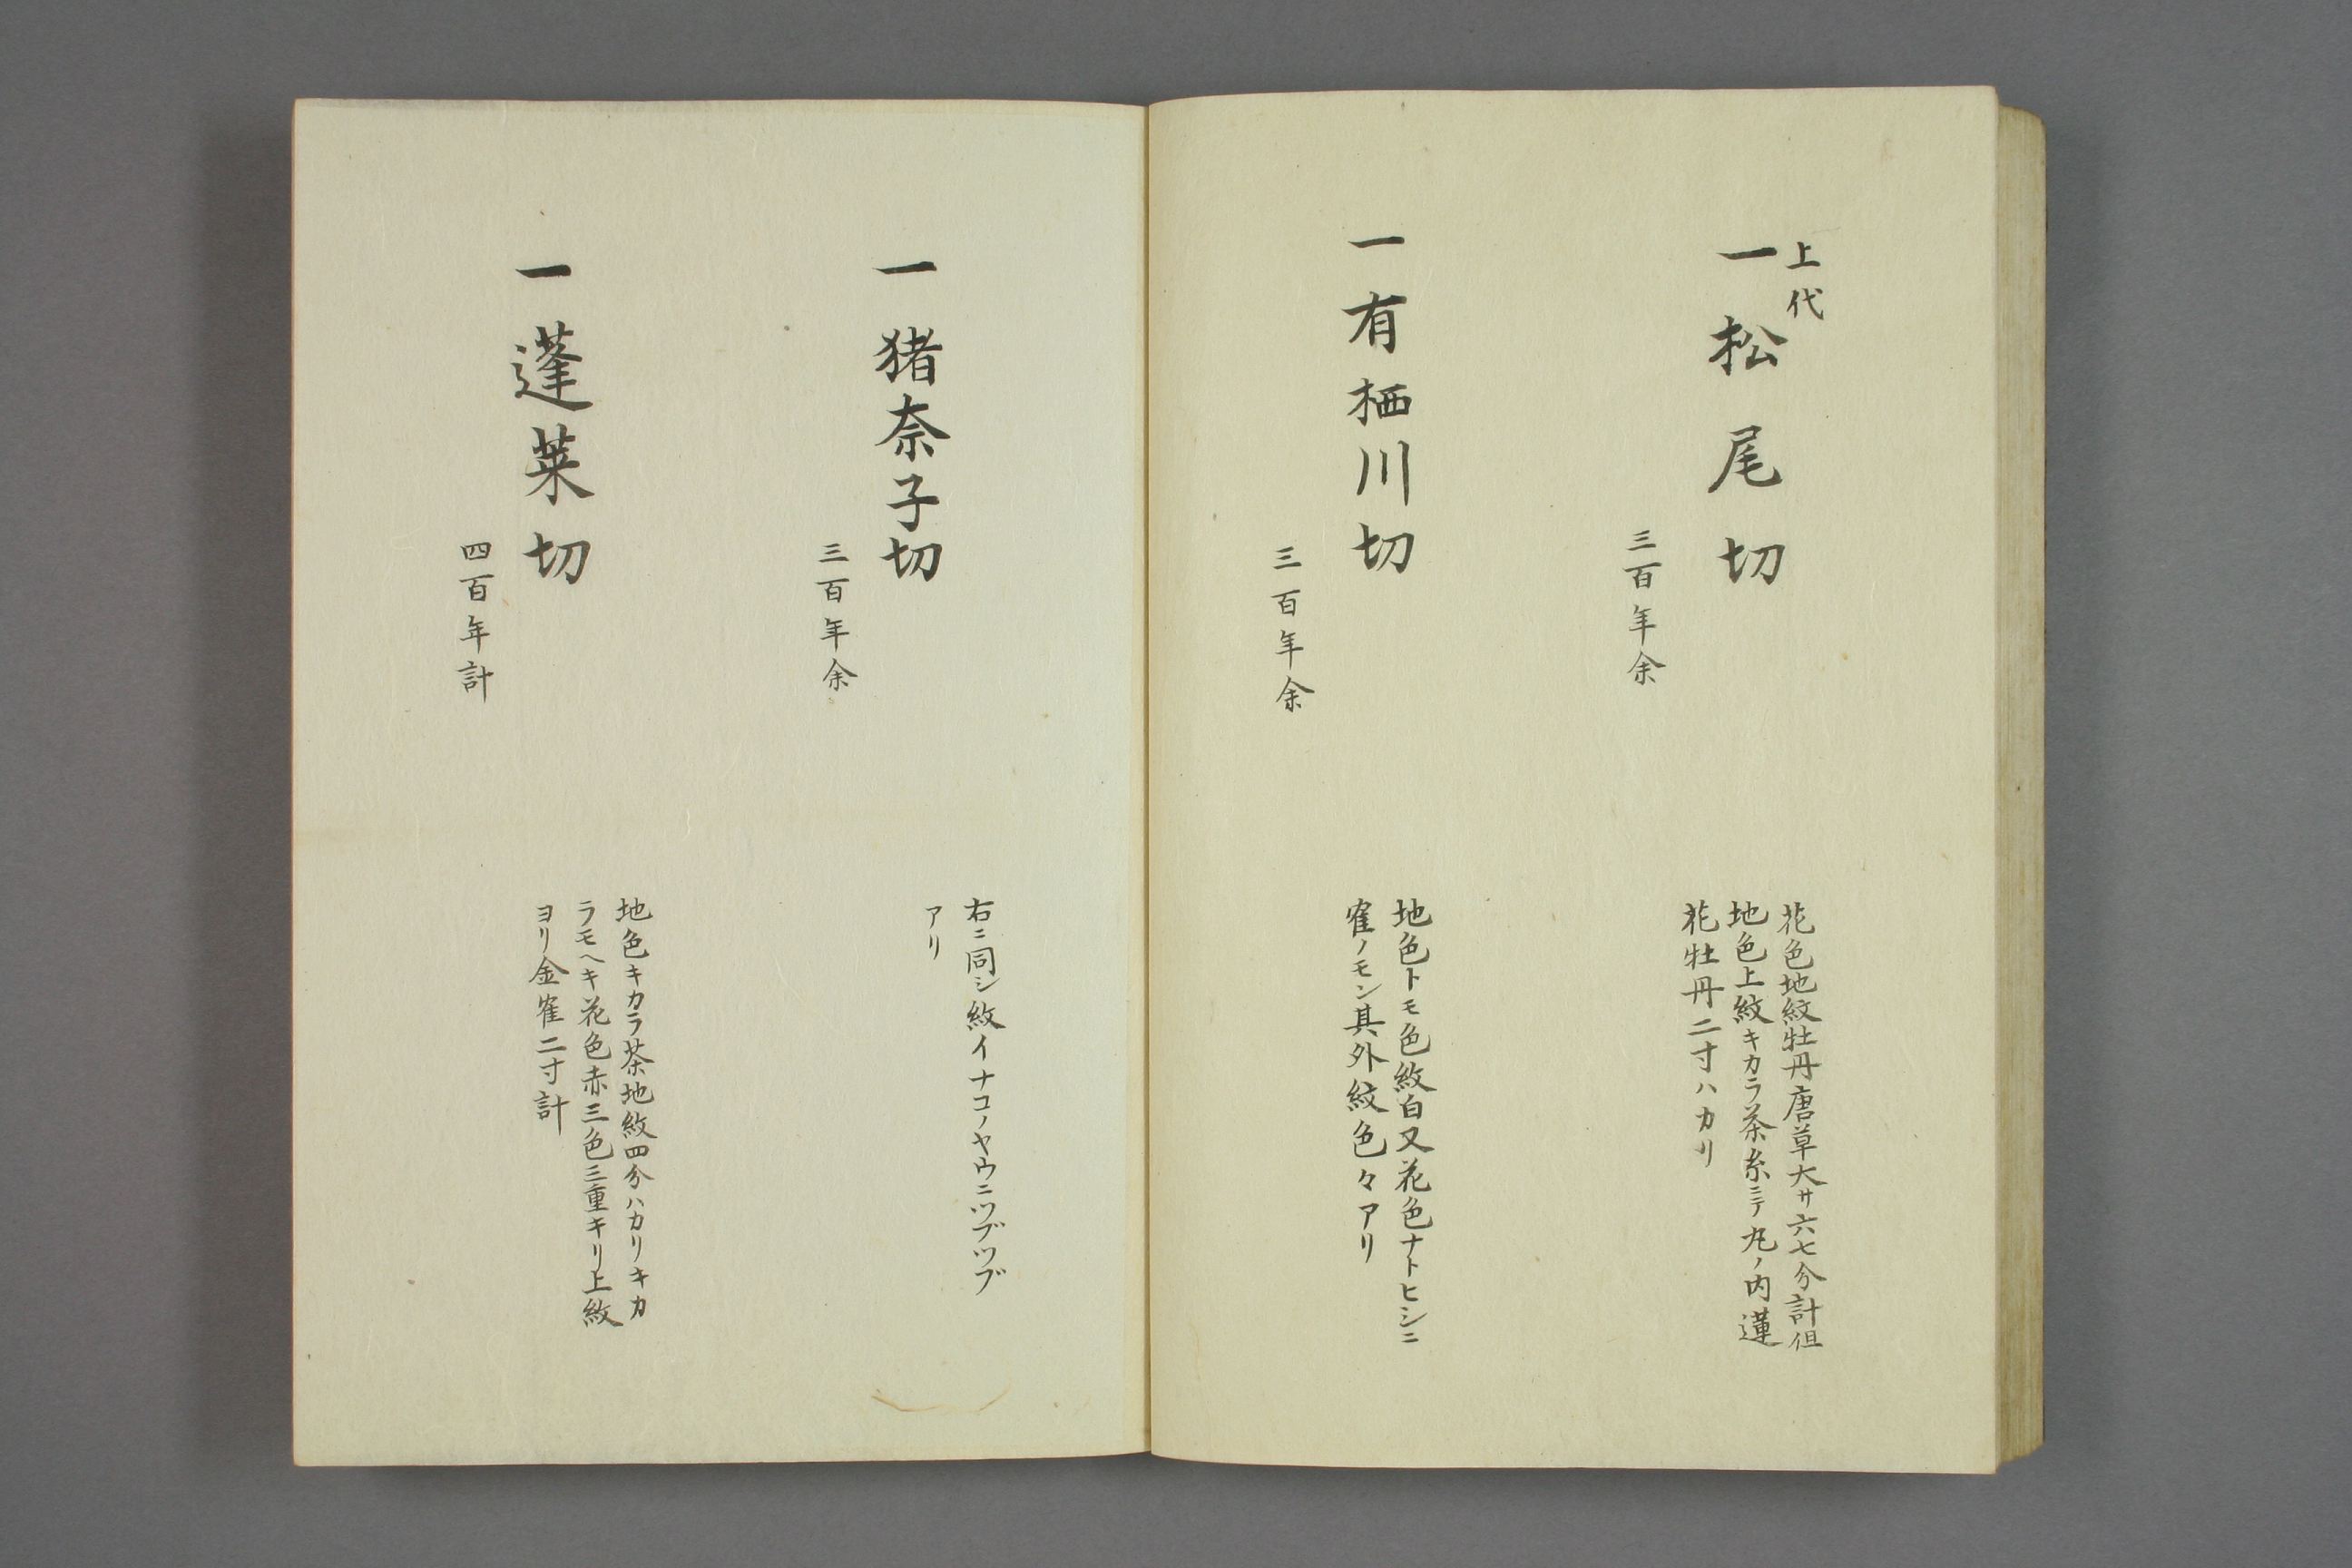 上代
一松尾切
三百年余
花色地紋牡丹唐草大サ六七分計但
地色上紋キカラ茶糸ニテ丸ノ内蓮
花牡丹二寸ハカリ
一有栖川切
三百年余
地色トモ色紋白又花色ナトヒシニ
寉ノモン其外紋色々アリ
一猪奈子切
三百年余
右ニ同シ紋イナコノヤウニツブツブ
アリ
一蓬莱切
四百年計
地色キカラ茶地紋四分ハカリキカ
ラモヘキ花色赤三色三重キリ上紋
ヨリ金寉二寸計